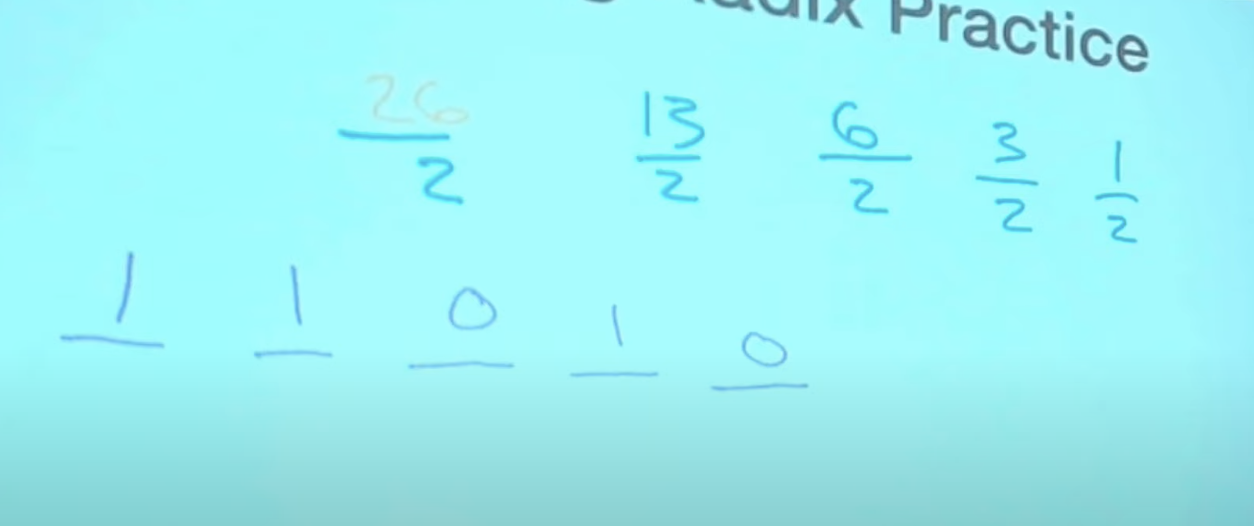 Practice
26/2 13/2 6/2 3/2 1/2
1 1 0 1 0